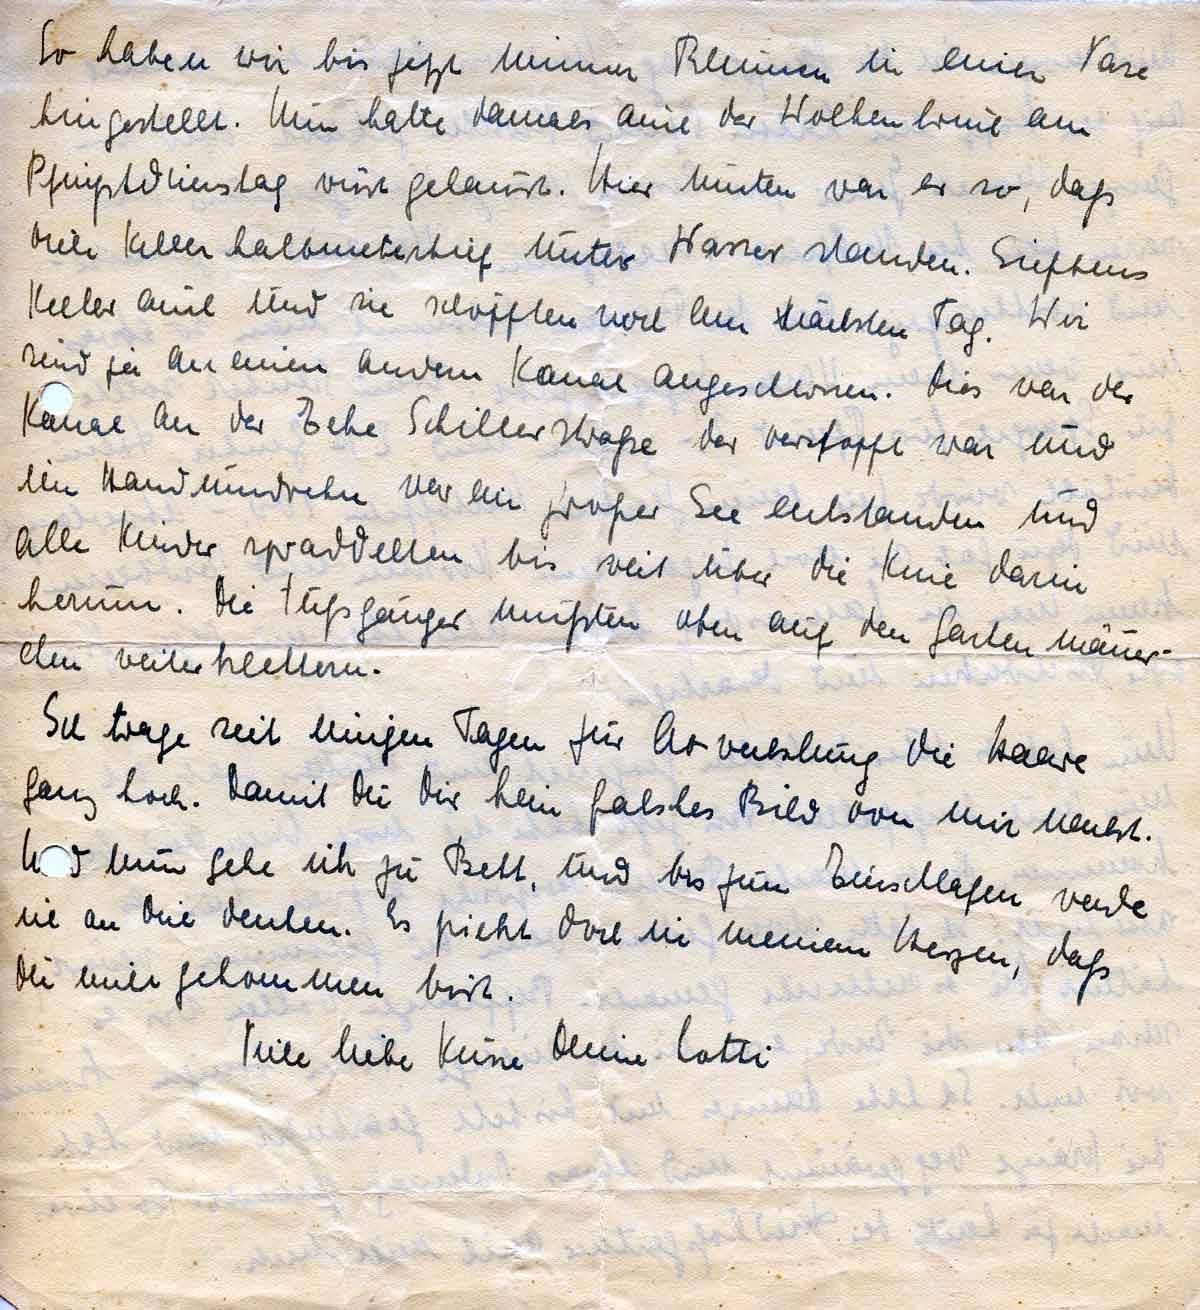 So haben wir bis jetzt immer Blumen in einer Vase
hingestellt. Nun hatte damals auch der Wolkenbruch am
Pfingstdienstag wüst gehaust. Hier unten war er so, daß
viele Keller halbmetertief unter Wasser standen.
Keller auch und sie schöpften noch am nächsten Tag. Wir
sind ja an einen andern Kanal angeschlossen. Dies war der
Kanal an der Ecke Schillerstraße der verstopft war und
im Handumdrehn war ein großer See entstanden und
alle Kinder spraddelten bis weit über die Knie darin
herum. Die Fußgänger mußten oben auf den Gartenmäuer-
chen weiterklettern.
Ich trage seit einigen Tagen zur Abwechslung die Haare
ganz hoch. Damit Du Dir kein falsches Bild von mir machst.
Und nun gehe ich zu Bett, und bis zum Einschlafen werde
ich an Dich denken. Es zieht doch in meinem Herzen, daß
Du nicht gekommen bist.
Viele liebe Küsse Deine Lotti